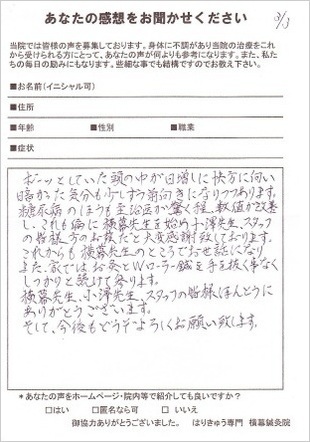 あなたの感想をお聞かせください
3/3
当院では皆様の声を募集しております。身体に不調があり当院の治療をこれ
から受けられる方にとって、あなたの声が何よりも参考になります。また、私た
ちの毎日の励みにもなります。些細な事でも結構ですのでお教え下さい。
■お名前(イニシャル可)
■住所
■年齢 ■性別 ■職業
■症状
ボーッとしていた頭の中が日増しに快方に向い
暗かった気分も少しずつ前向きになりつつあります。
糖尿病のほうも主治医が驚く程、数値が改善
し、これも偏に横幕先生を始め小澤先生、スタッフ
の皆様方のお陰だと大変感謝致しております。
これからも横幕先生のところでお世話になり
また、家ではお灸とWローラー鍼を手を抜く事なく
しっかりと続けて参ります。
横幕先生、小澤先生、スタッフの皆様ほんとうに
ありがとうございます。
そして、今後もどうぞよろしくお願い致します。
*あなたの声をホームページ・院内等で紹介しても良いですか?
□はい □匿名なら可 □いいえ
御協力ありがとうございました。 はりきゅう専門 横幕鍼灸院